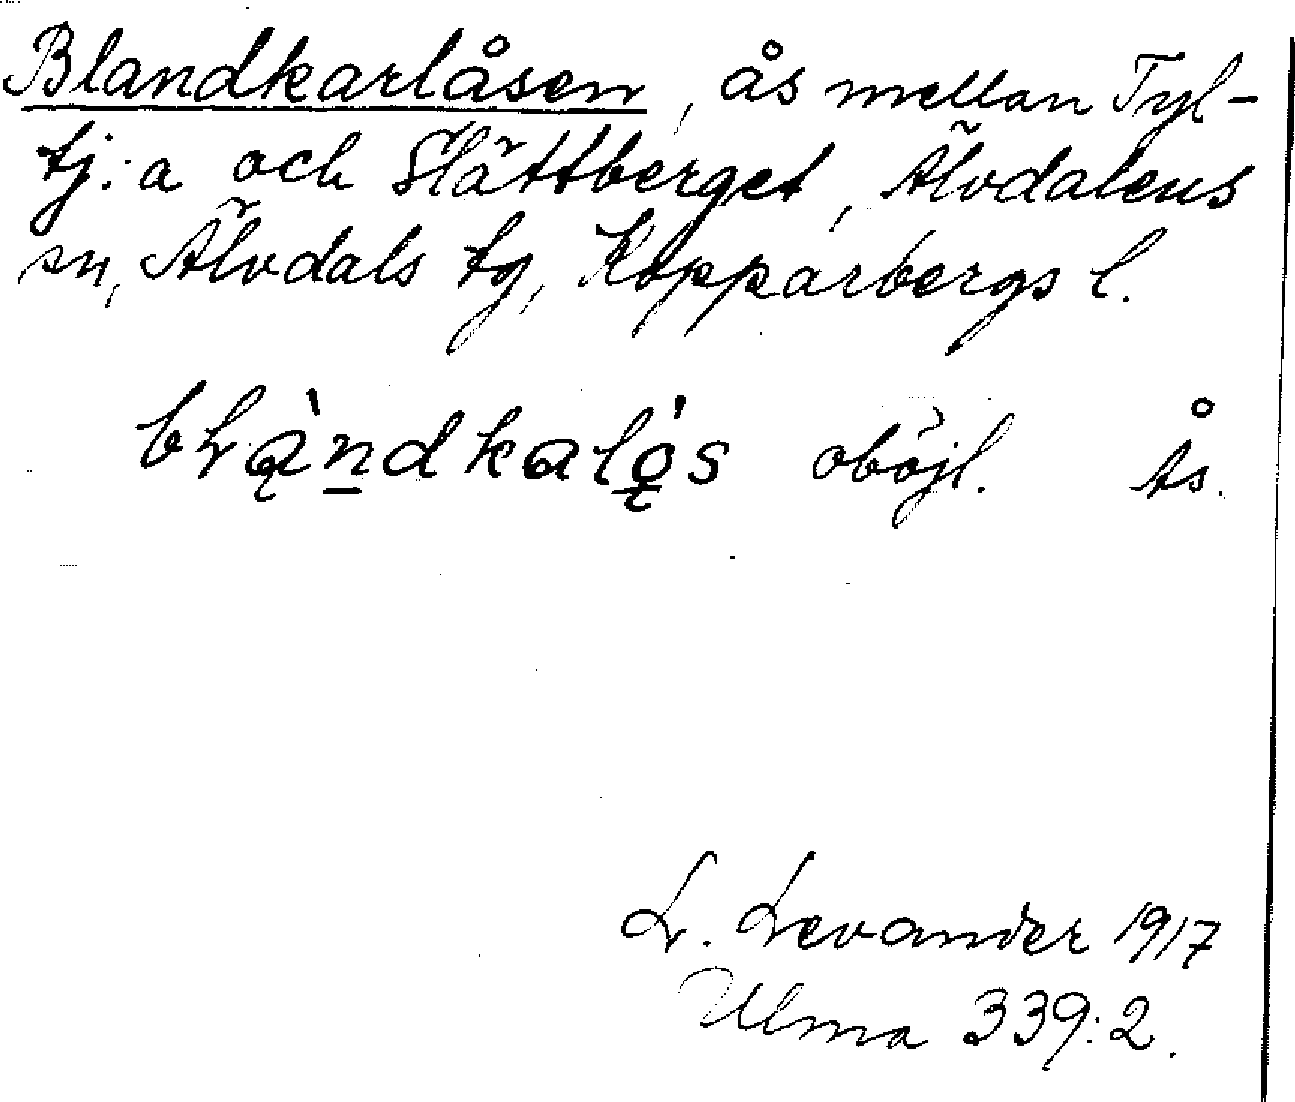 Blandkarlåsen, ås mellan Tyl-
tj:a och Slättberget, Älvdalens
sn, Älvdals tg, Kopparbergs l.
błą̀n̲dkalǫ̲́s oböjl. Ås.
L. Levander 1917
Ulma 339:2.